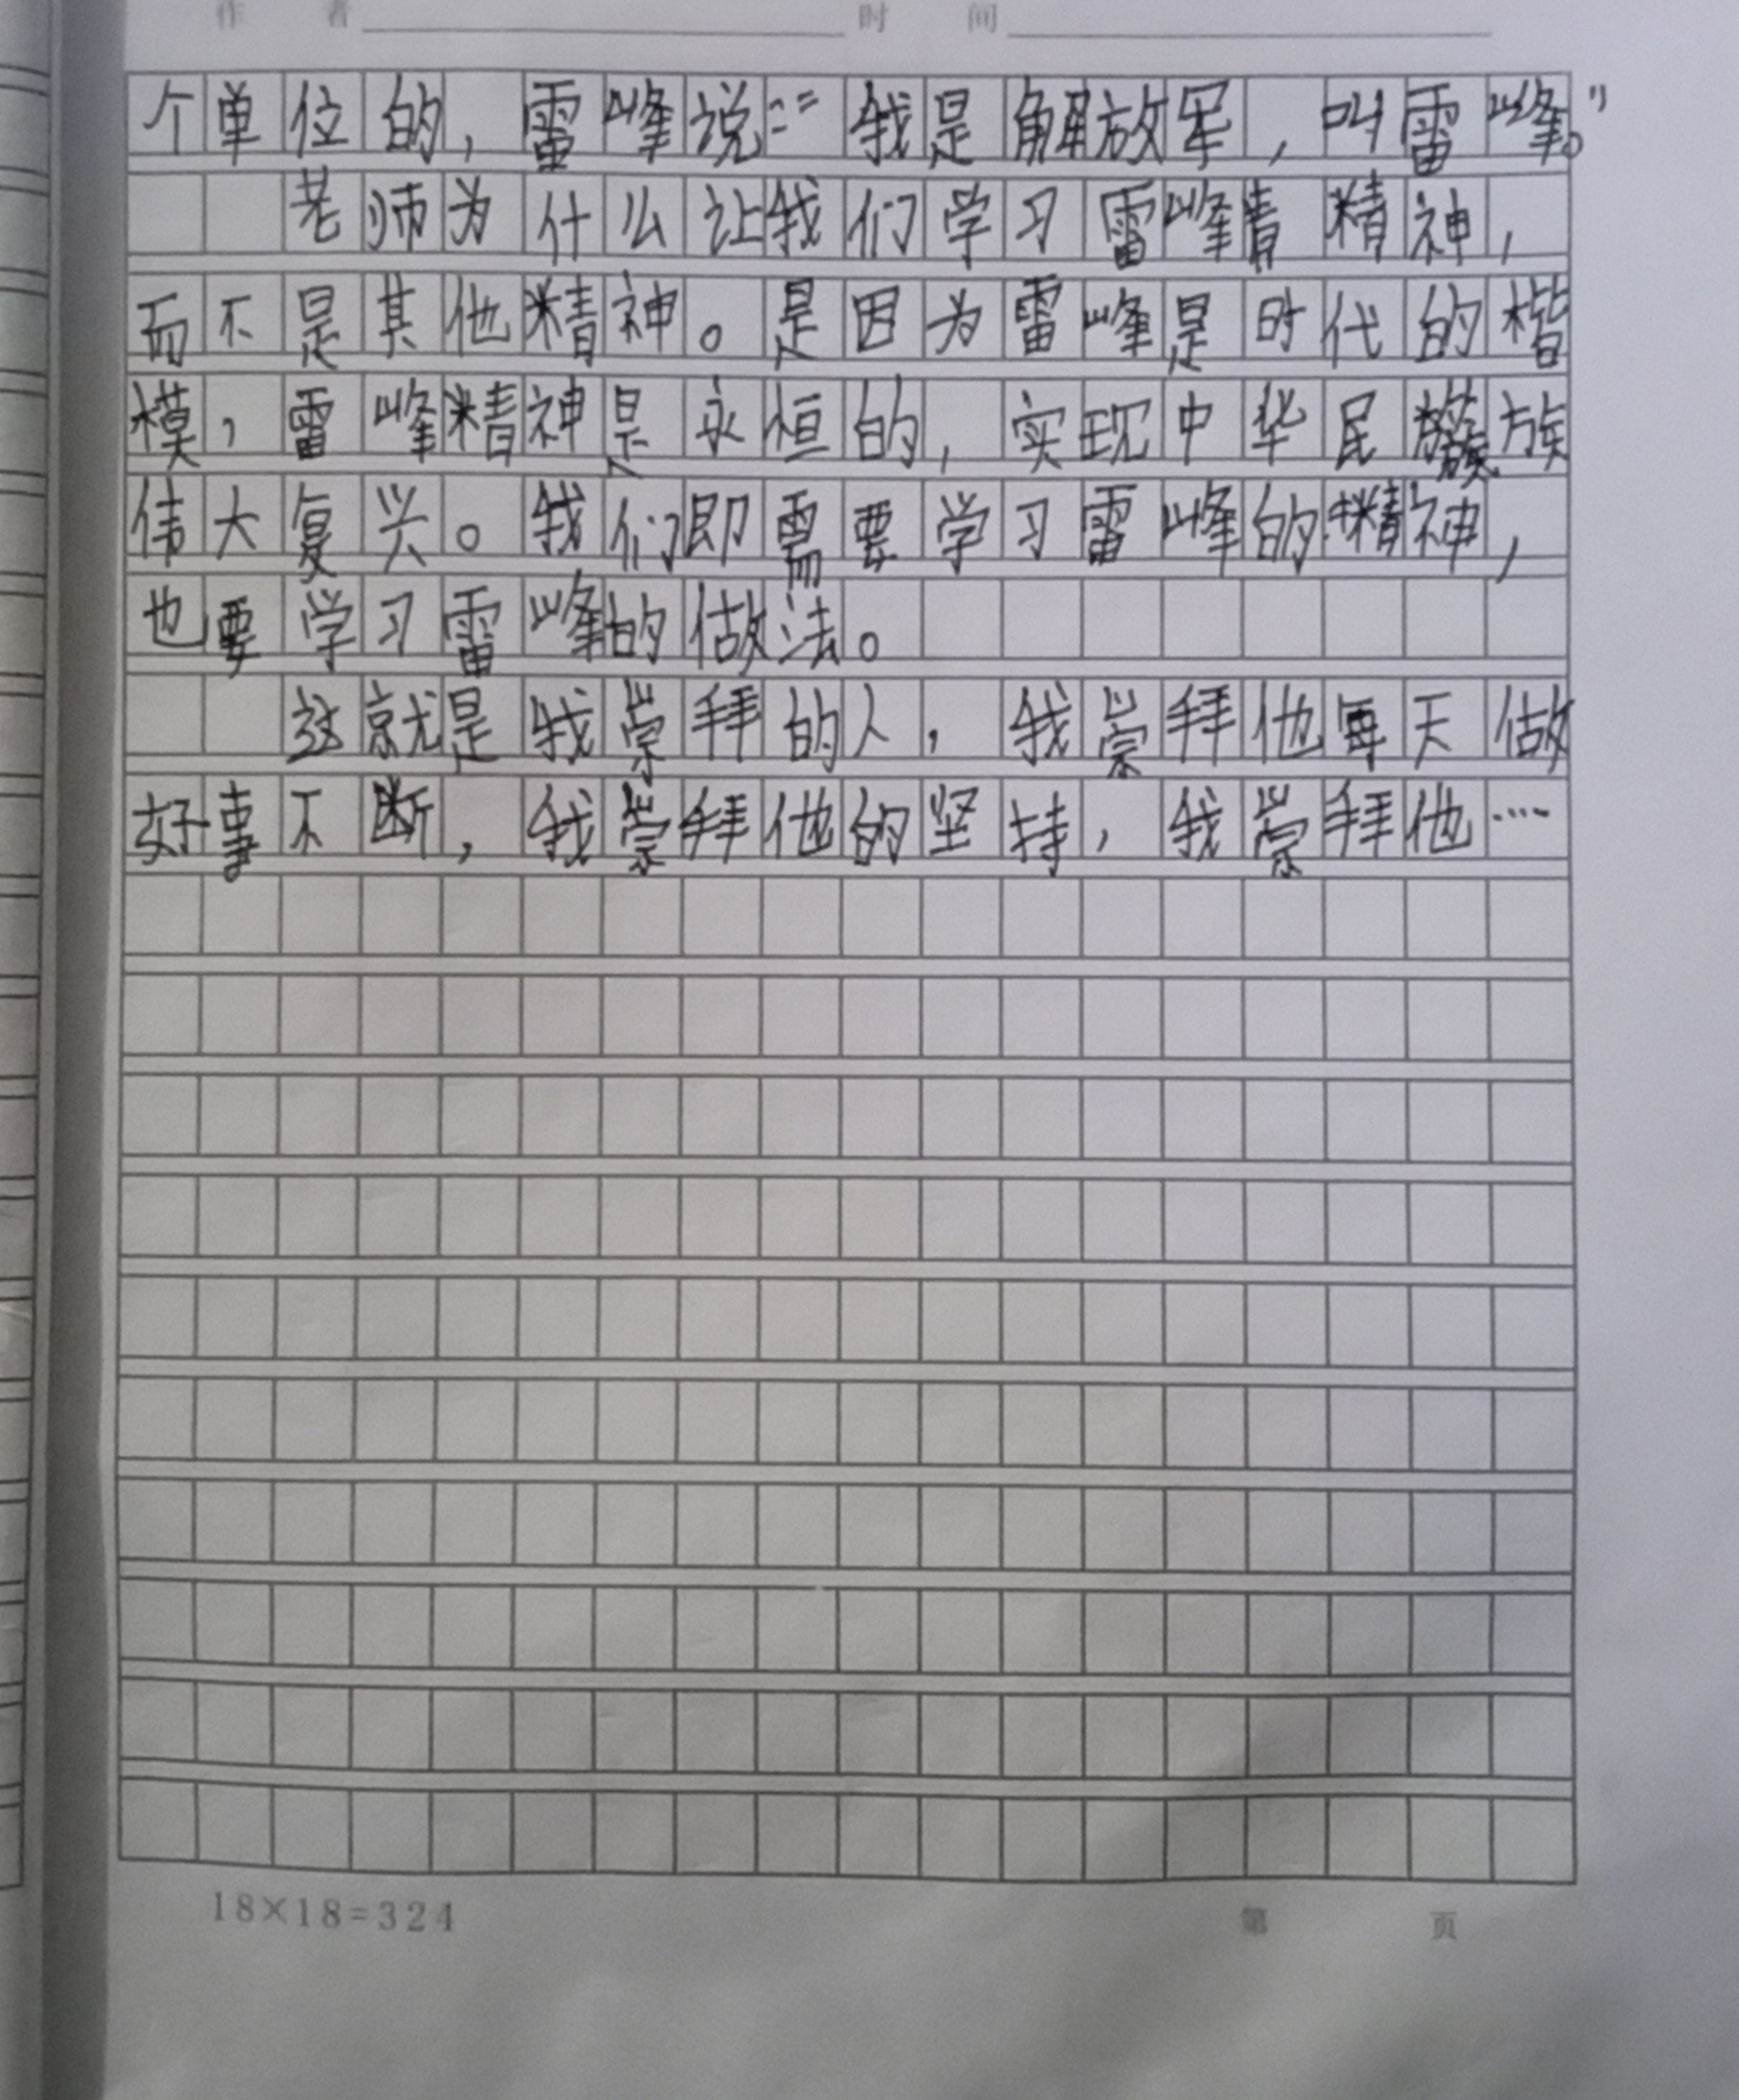 作 者 时 间
个单位的,雷峰说:“我是解放军,叫雷峰。”
老师为什么让我们学习雷峰青精神,
而不是其他精神。是因为雷峰是时代的楷
模,雷峰精神是永恒的,实现中华民族
伟大复兴。我们即需要学习雷峰的精神,
也要学习雷峰的做法。
这就是我崇拜的人,我崇拜他每天做
好事不断,我崇拜他的坚持,我崇拜他…
18×18=324 第 页